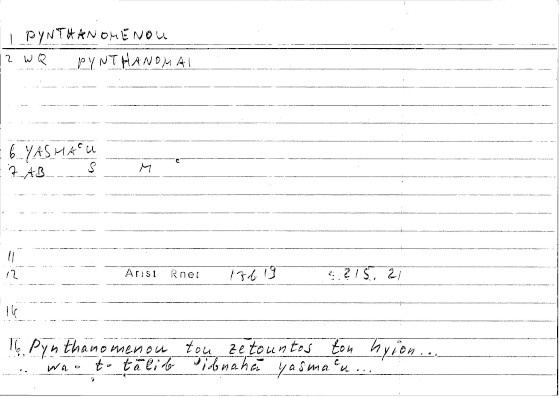 1 PYNTHANOMENOU
2 WQ PYNTHANOMAI
6 YASMAᶜU
7 AB S M ᶜ
11
12 Arist Rhet 17b19 s.215, 21
14
16 Pynthanomenou tou zētountos ton hyion...
.. wa- t- ṭālib ʾibnahā yasmaᶜu...